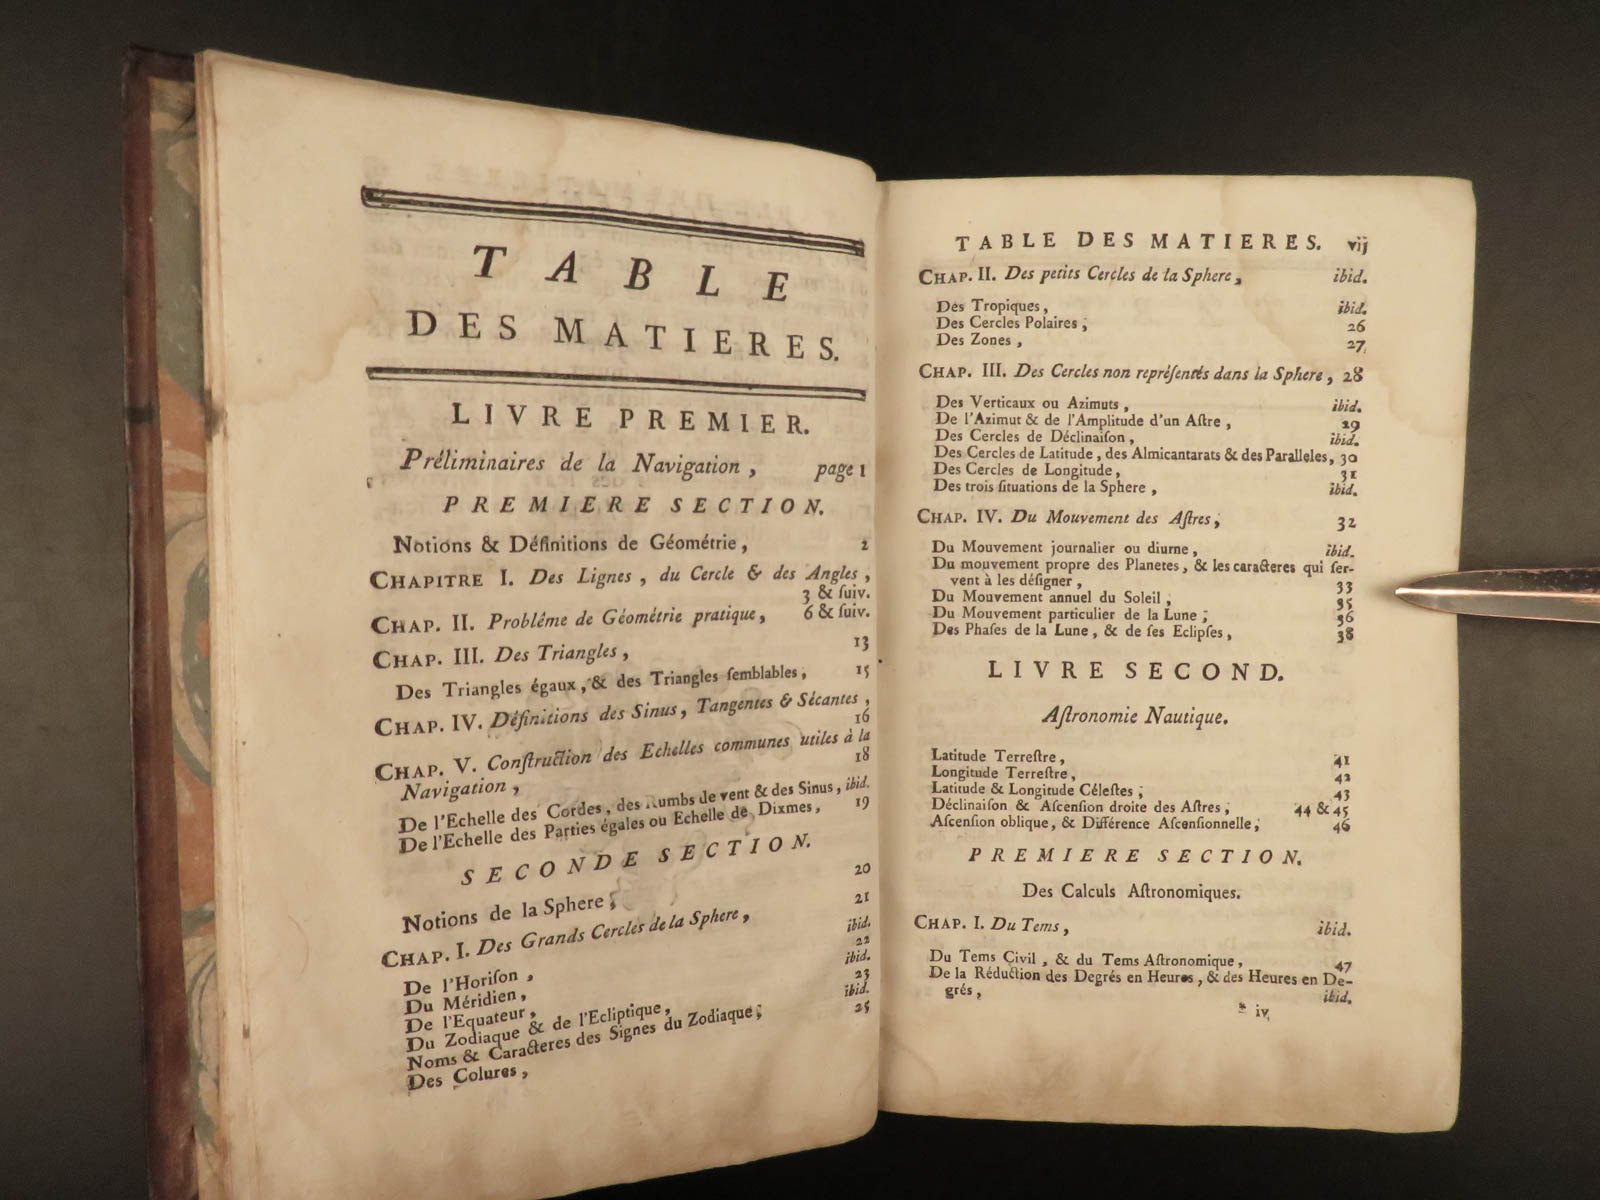 TABLE
DES MATIERES.
LIVRE PREMIER.
Préliminaires de la Navigation, page 1
PREMIERE SECTION.
Notions & Définitions de Géométrie, 2
CHAPITRE I. Des Lignes, du Cercle & des Angles,
3 & ſuiv.
CHAP. II. Probléme de Géométrie pratique, 6 & ſuiv.
CHAP. III. Des Triangles, 13
Des Triangles égaux, & des Triangles ſemblables, 15
CHAP. IV. Définitions des Sinus, Tangentes & Sécantes,
16
CHAP. V. Conſtruction des Echelles communes utiles à la
Navigation, 18
De l'Echelle des Cordes, des Rumbs de vent & des Sinus, ibid.
De l'Echelle des Parties égales ou Echelle de Dixmes, 19
SECONDE SECTION.
Notions de la Sphere, 20
CHAP. I. Des Grands Cercles de la Sphere, 21
De l'Horiſon, ibid.
Du Méridien, 22
De l'Equateur, ibid.
Du Zodiaque & de l'Ecliptique, 23
Noms & Caracteres des Signes du Zodiaque, ibid.
Des Colures, 25
TABLE DES MATIERES. vij
CHAP. II. Des petits Cercles de la Sphere, ibid.
Des Tropiques, ibid.
Des Cercles Polaires, 26
Des Zones, 27
CHAP. III. Des Cercles non repréſentés dans la Sphere, 28
Des Verticaux ou Azimuts, ibid.
De l'Azimut & de l'Amplitude d'un Aſtre, 29
Des Cercles de Déclinaiſon, ibid.
Des Cercles de Latitude, des Almicantarats & des Paralleles, 30
Des Cercles de Longitude, 31
Des trois ſituations de la Sphere, ibid.
CHAP. IV. Du Mouvement des Aſtres, 32
Du Mouvement journalier ou diurne, ibid.
Du mouvement propre des Planetes, & les caracteres qui ſer-
vent à les déſigner, 33
Du Mouvement annuel du Soleil, 35
Du Mouvement particulier de la Lune, 36
Des Phaſes de la Lune, & de ſes Eclipſes, 38
LIVRE SECOND.
Aſtronomie Nautique.
Latitude Terreſtre, 41
Longitude Terreſtre, 42
Latitude & Longitude Céleſtes, 43
Déclinaiſon & Aſcenſion droite des Aſtres, 44 & 45
Aſcenſion oblique, & Différence Aſcenſionnelle, 46
PREMIERE SECTION.
Des Calculs Aſtronomiques.
CHAP. I. Du Tems, ibid.
Du Tems Civil, & du Tems Aſtronomique, 47
De la Réduction des Degrés en Heures, & des Heures en De-
grés, ibid.
* iv